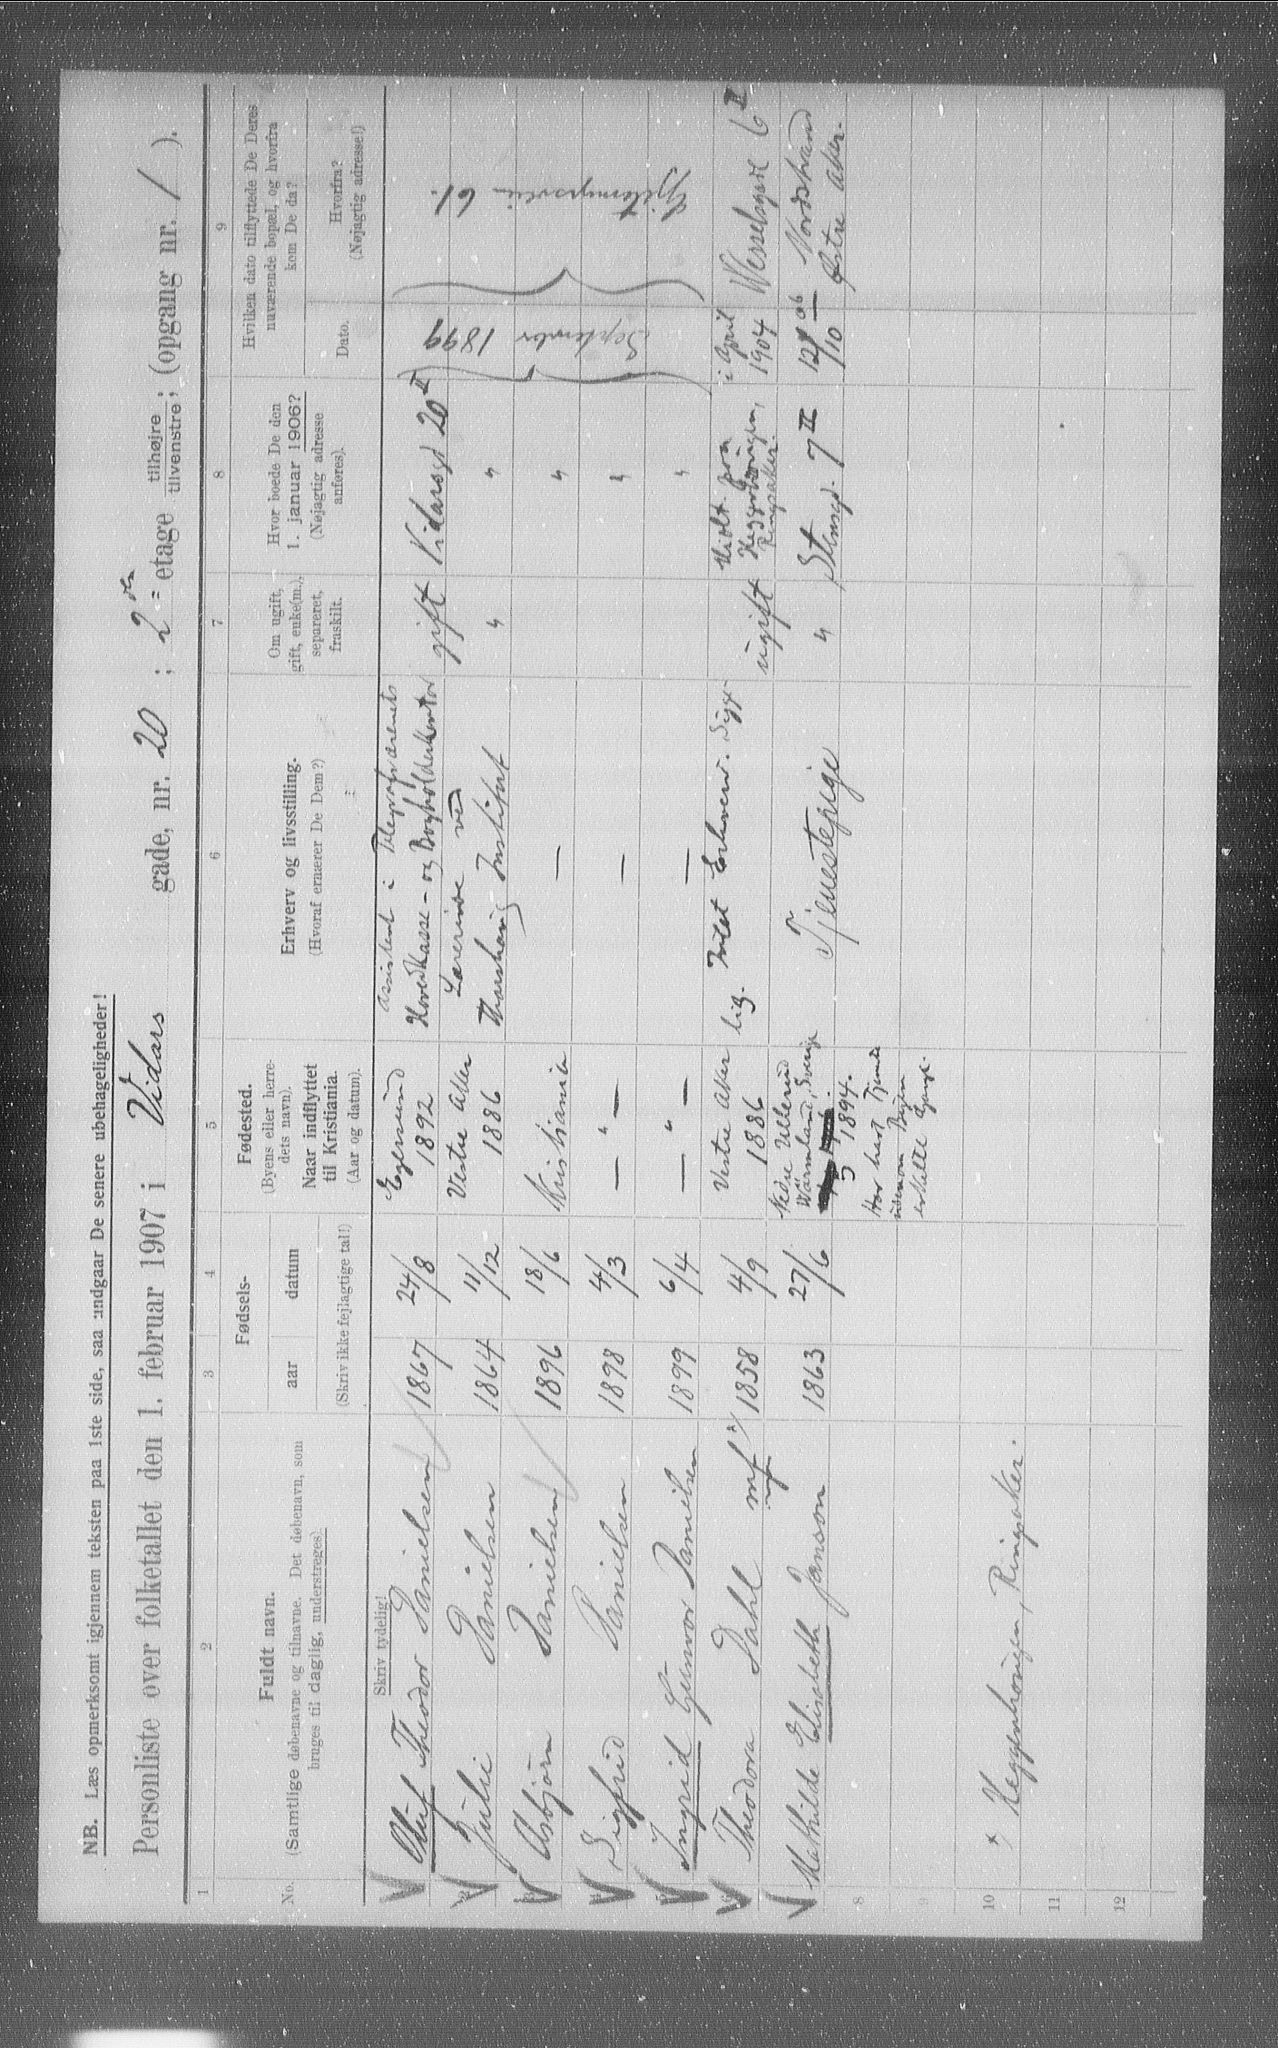 NB. Læs opmerksomt igjennem teksten paa 1ste side, saa undgaar De senere ubehageligheder!
Personliste over folketallet den 1. februar 1907 i Vidars gade, nr. 20 ; 2den etage tilhøjre / tilvenstre ; (opgang nr. / ).
1 2 3 4 5 6 7 8 9
No.
Fuldt navn.
(Samtlige døbenavne og tilnavne. Det døbenavn, som
bruges til daglig, understreges).
Fødsels-
aar datum
(Skriv ikke fejlagtige tal!)
Fødested.
(Byens eller herre-
dets navn).
Naar indflyttet
til Kristiania.
(Aar og datum).
Erhverv og livsstilling.
(Hvoraf ernærer De Dem?)
Om ugift,
gift, enke(m.),
separeret,
fraskilt.
Hvor boede De den
1. januar 1906?
(Nøjagtig adresse
anføres).
Hvilken dato tilflyttede De Deres
nuværende bopæl, og hvorfra
kom De da?
Dato.
Hvorfra?
(Nøjagtig adresse!)
Skriv tydelig!
Oluf Theodor Danielsen 1867 24/8 Egersund
1892
Assistent i Telegrafvæsenets
Hovedkasse- og Bogholderkontor
gift Vidarsgd 20 II
September 1899
61.
Julie Danielsen 1864 11/12 Vestre Aker
1886
Lærerinde ved
Institut
" "
Asbjørn Danielsen 1896 18/6 Kristiania — "
Sigfrid Danielsen 1898 4/3 — " — — "
Ingrid Gunvor Danielsen 1899 6/4 — " — — "
Theodora Dahl mf x) 1858 4/9 Vestre Aker
1886
Intet Erhverv. Syge-
lig.
ugift
Midt. fra
Heggenhougen,
Ringsaker.
i April
1904
Wesselsgade 6 II
Mathilde Elisabeth Janson 1863 27/6 Nedre Ullerud
Wärmland, Sverige
1894.
Har havt Tjeneste
udenom Byen
enkelte Gange.
Tjenestepige
" Stensgd. 7 II
12/10 06
Nordstrand
Østre Aker.
8
9
10
11
12
x) Heggenhougen, Ringsaker.